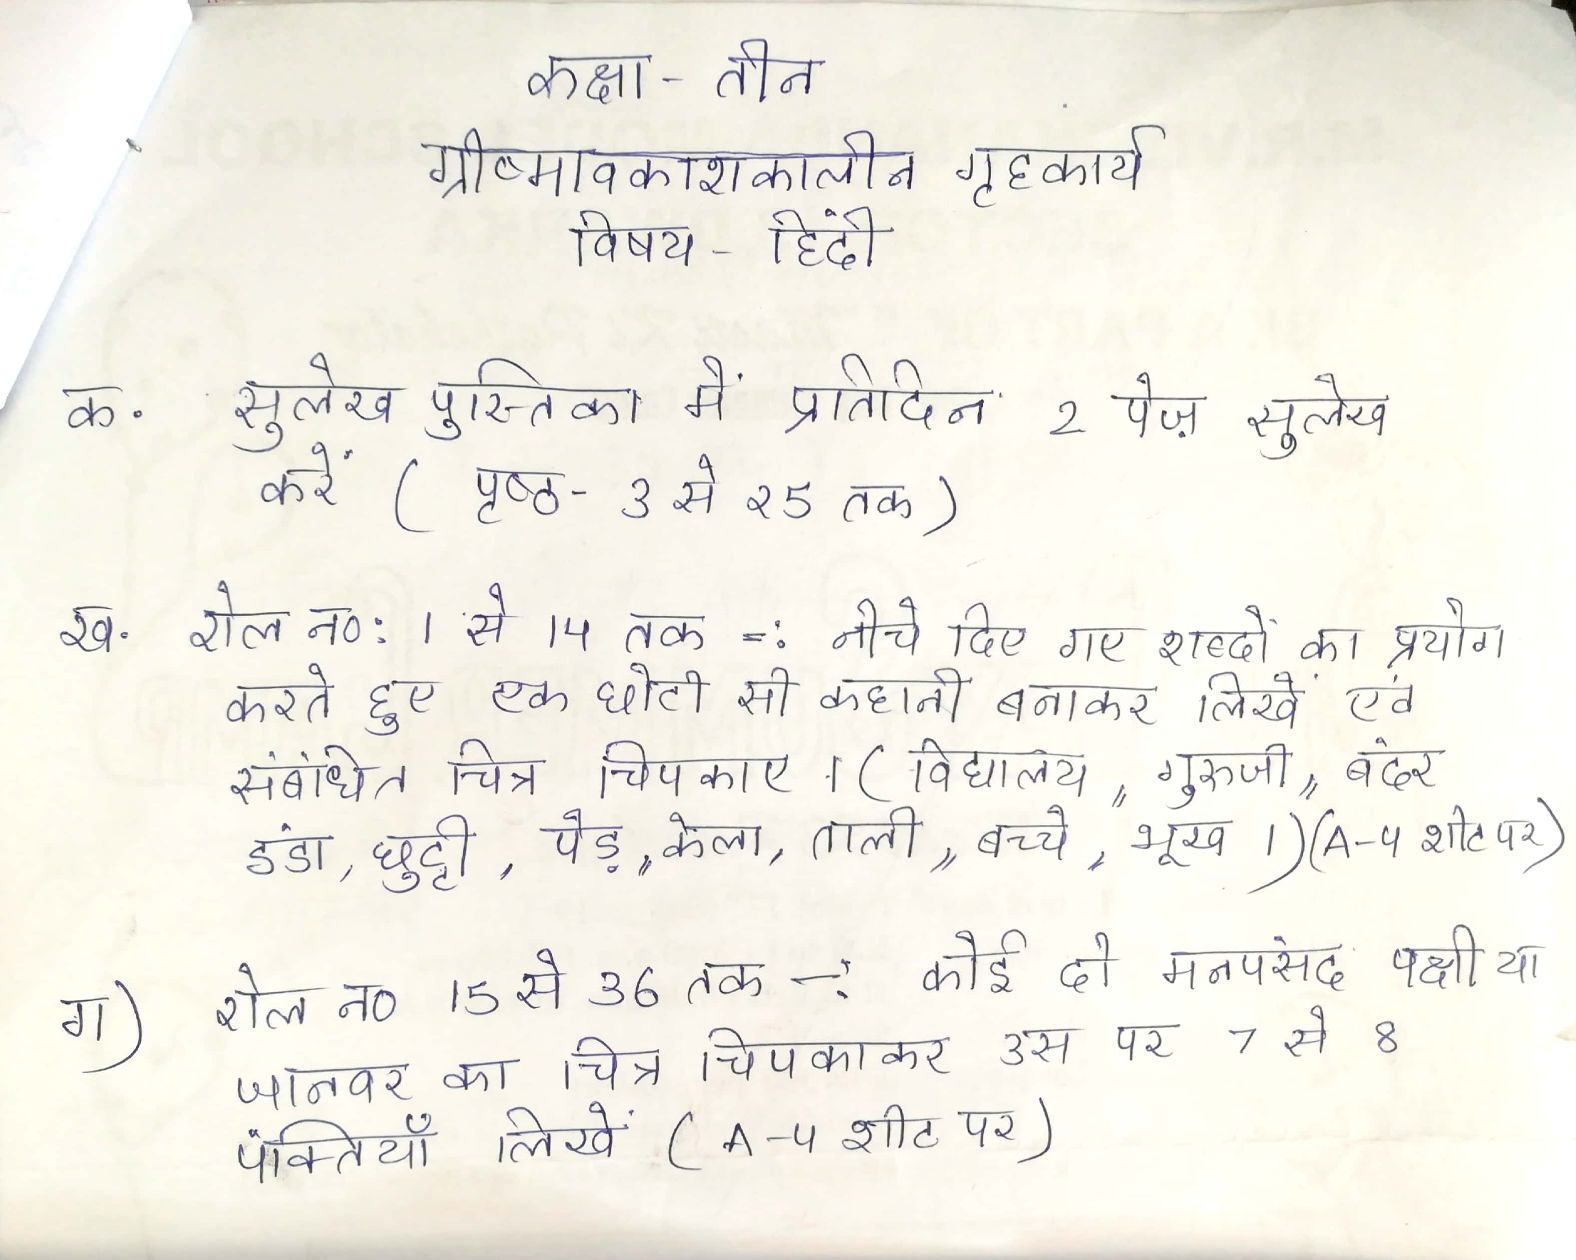 कक्षा - तीन
ग्रीष्मावकाशकालीन गृहकार्य
विषय - हिंदी
क. सुलेख पुस्तिका में प्रतिदिन 2 पेज़ सुलेख
करें ( पृष्ठ - 3 से 25 तक )
ख. रोल न०: 1 से 14 तक -: नीचे दिए गए शब्दों का प्रयोग
करते हुए एक छोटी सी कहानी बनाकर लिखें एवं
संबंधित चित्र चिपकाए । ( विद्यालय ,, गुरुजी ,, बंदर
डंडा , छुट्टी , पेड़ ,, केला , ताली ,, बच्चे , भूख ।) (A-4 शीट पर)
ग) रोल न० 15 से 36 तक -: कोई दो मनपसंद पक्षी या
जानवर का चित्र चिपकाकर उस पर 7 से 8
पंक्तियाँ लिखें ( A-4 शीट पर )